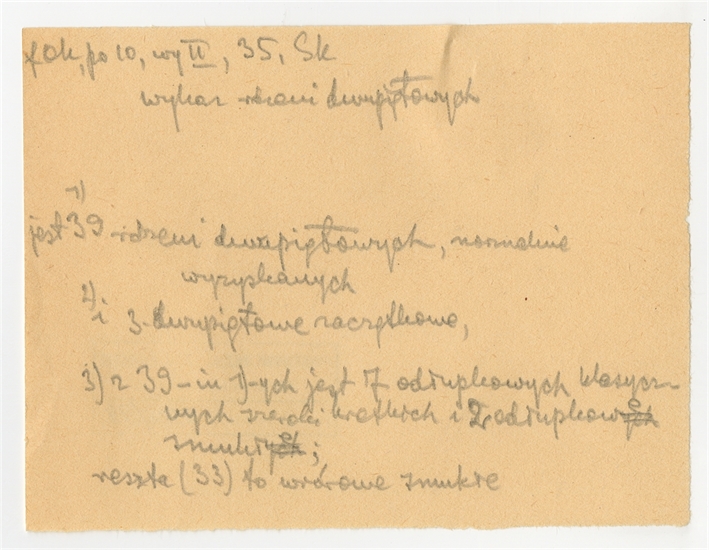 po 10, wy II, 35, Sk
wykaz rdzeni dwupiętowych
1)
jest 39 rdzeni dwupiętowych, normalnie
wyzyskanych
2)
i 3 dwupiętowe zaczątkowe,
3) z 39-iu 1)-ych jest 7 odłupkowych klasycz-
nych szeroki kratkich i 2 odłupkowe
smukłe;
reszta (33) to wiórowe smukłe